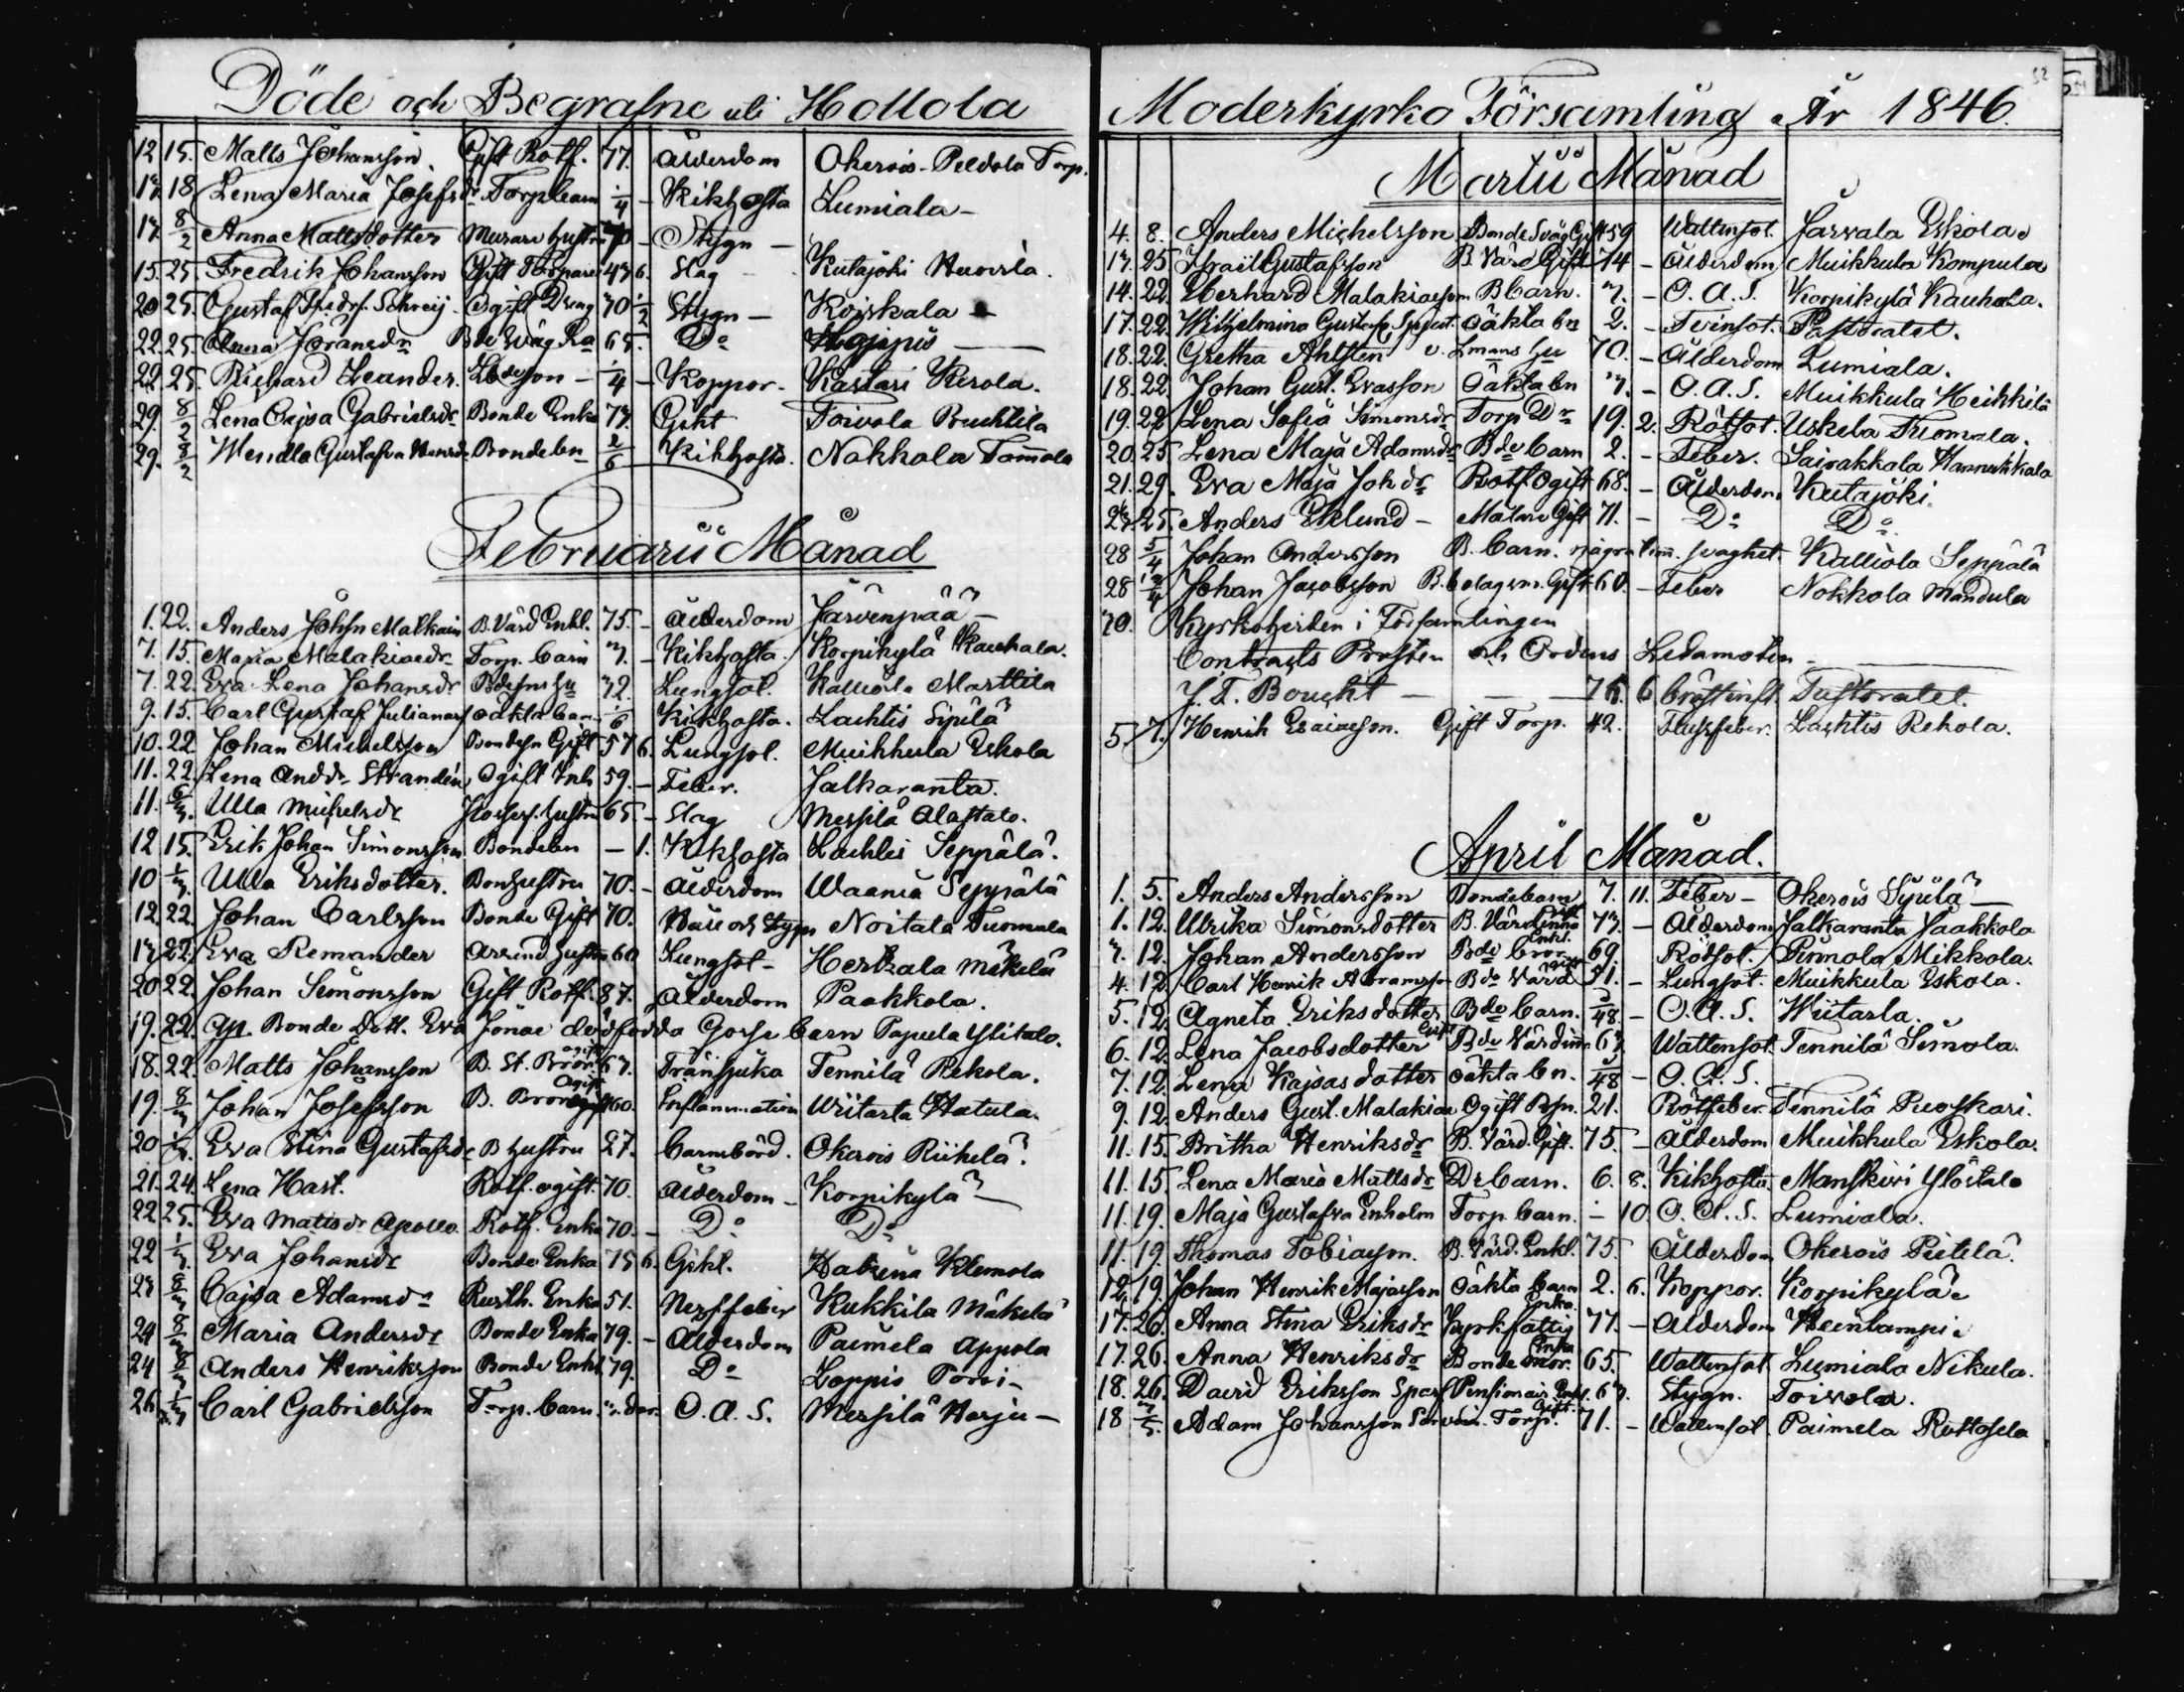 Döde och Begrafne uti Hollola
12 15. Matts Johansson Gift Rotf. 77. Ålderdom Okerois Peldola Torp.
17. 18 Lena Maria Josefsdr Torpbarn 1/4 - Kikhosta Lumiala -
17. 8/2 Anna Mattsdotter Murare hustru 70 - Stygn -
15. 25 Fredrik Johansson Gift Torpare 47 6. Slag - Kutajoki Huovila.
20 25. Gustaf Ogift Dreng 70 1/2 Stygn - Koiskala -
22. 25. Anna Göransdr 65. Do
22. 25. Richard Leander. 1/4 - Koppor. Kastari Kerola.
29. 8/2 Lena Cajsa Gabrielsdr Bonde Enka 77. Gikt Toivola
29. 8/2 Wendla Gustafva Bondebn 2/6 Kikhosta. Nokkola Tom̄ola
Februarii Månad
1. 22. Anders Johsn Malkain B. Värd Enkl. 75. - Ålderdom Järvenpää -
7. 15. Maria Malakiaedr Torp. barn 7. - Kikhosta. Korpikylä Kauhala.
7. 22. Eva Lena Johansdr Bdesns hu 72. Lungsot. Kalliola Marttila
9. 15. Carl Gustaf Julianasf oäkta barn 1/6 Kikhosta. Lachtis Sipilä
10. 22 Johan Michelsson Bondesn Gift 57 6. Lungsot. Muikkula Eskola
11. 22. Lena Andr Strandén Ogift Inh 59. - Feber. Jalkaranta.
11. Ulla Michelsdr hustru 65. - Slag Messilä Alastalo.
12 15. Erik Johan Simonsson Bondebn - 1. Kikhosta Lachtis Seppälä.
10 1/3. Ulla Eriksdotter. Bonhustru 70. - Ålderdom Waania Seppälä
12. 22. Johan Carlsson Bonde Gift 70. och Stygn Noitala Tuomala
17 22. Eva Remander hustru 60 Lungsot - Herkala Mäkelä
20 22. Johan Simonsson Gift Rotf. 87. Ålderdom Paakkola.
19. 22. Bonde Dott. Eva Jönae dödfödda Gosse barn Papula Ylitalo.
18. 22. Matts Johansson B. St. Bror. ogift 67. Trånsjuka Tennilä Rekola.
19. 8/3 Johan Josefsson B. Bror Ogift 60. Inflammation Wiitarla Hatula.
20 1/3. Eva Stina Gustafsdr B hustru 27. Barnsbörd. Okerois Riihelä.
21. 24. Lena Hast. Rotf. ogift. 70. Ålderdom - Korpikylä -
22 25. Eva Mattsdr Apollo. Rotf. Enka 70. - Do Do
22 1/3. Eva Johansdr Bonde Enka 75 6. Gikt. Klemola
27 8/3 Cajsa Adamsdr Rusth. Enka 51. Nerffeber Kukkila Mäkelä
24 8/3 Maria Andersdr Bonde Enka 79. - Ålderdom Paimela Appola
24 8/3 Anders Henriksson Bonde Enkl 79. Do Loppis Torvi -
26 1/3. Carl Gabrielsson Torp. barn O. A. S. Messilä Harju -
Moderkyrko Församling År 1846.
52
Martii Månad
4. 8. Anders Michelsson Bonde Svåg Gift 59 Wattensot. Järvala Eskola.
17. 25 Israel Gustafsson B. Värd Gift 74 - Ålderdom Muikkula Kompula
14. 22. Eberhard Malakiaesson B barn. 7. - O. A. S. Korpikylä Kauhala.
17. 22. Wilhelmina Gustafs oäkta bn 2. - Tvinsot. Pastoratet.
18. 22. Gretha Ahlsten v. Lmans hu 70. - Ålderdom Lumiala.
18. 22 Johan Gust. Evasson Oäkta bn 7. - O. A. S. Muikkula Heikkilä
19. 22 Lena Sofia Simonsdr Torp Dr 19. 2. Rötsot. Uskela Tuomala.
20. 25 Lena Maja Adamsdr Bde barn 2. - Feber. Sairakkala Hannukkala
21. 29. Eva Maja Johdr Rotf. Ogift 68. - Ålderdom Kutajoki.
27. 25. Anders Eklund - Målare Gift 71. - Do Do.
28 5/4 Johan Andersson B. barn. några tim̄. svaghet. Kalliola Seppälä
28 12/4 Johan Jacobsson B. bolagsm. Gift 60. - Feber Nokkola Mandula
20. Kyrkoherden i Församlingen
Contracts Prosten och Ordens Ledamoten -
J. F. Boucht - - - 76. 6 bröstinfl. Pastoratet.
5. 7. Henrik Esaiaesson. Gift Torp. 42. Flussfeber. Lachtis Rekola.
April Månad.
1. 5. Anders Andersson Bondebarn 7. 11. Feber - Okerois Sipilä -
1. 12. Ulrika Simonsdotter B. Värdinna 77. - Ålderdom Jalkaranta Jaakkola
7. 12. Johan Andersson Bde bror Enkl. 69. Rötsot. Pinnola Mikkola.
4. 12. Carl Henrik Abramsson Bde Värd 51. - Lungsot. Muikkula Eskola.
5. 12. Agneta Eriksdotter Bde barn. 5/48 - O. A. S. Wiitarla.
6. 12. Lena Jacobsdotter Gift Bde Värdinna 67. Wattensot. Tennilä Simola.
7. 12. Lena Kajsasdotter oäkta bn. 5/48 - O. A. S.
9. 12. Anders Gust. Malakiae Ogift 21. Rötfeber. Tennilä Puoskari.
11. 15. Britha Henriksdr B. Värd. Gift. 75. - Ålderdom Muikkula Eskola.
11. 15. Lena Maria Mattsdr barn. 6. 8. Kikhosta. Manskivi Ylöstalo
11. 19. Maja Gustafva Enholm Torp. barn. - 10. O. A. S. Lumiala.
11. 19. Thomas Tobiaesson. B. Värd. Enkl. 75. Ålderdom Okerois Pietilä.
12. 19. Johan Henrik Majasson Oäkta barn 2. 6. Koppor. Korpikylä.
17. 26. Anna Stina Eriksdr Kyrkfattig Enka 77. - Ålderdom Heinlampi.
17. 26. Anna Henriksdr Bonde mor. Enka 65. Wattensot Lumiala Nikula.
18. 26. David Eriksson Sparf Pensionair Enkl. 67. Stygn. Toivola.
18 3/5. Adam Johansson Torp. Gift. 71. - Wattensot. Paimela Ruttosela